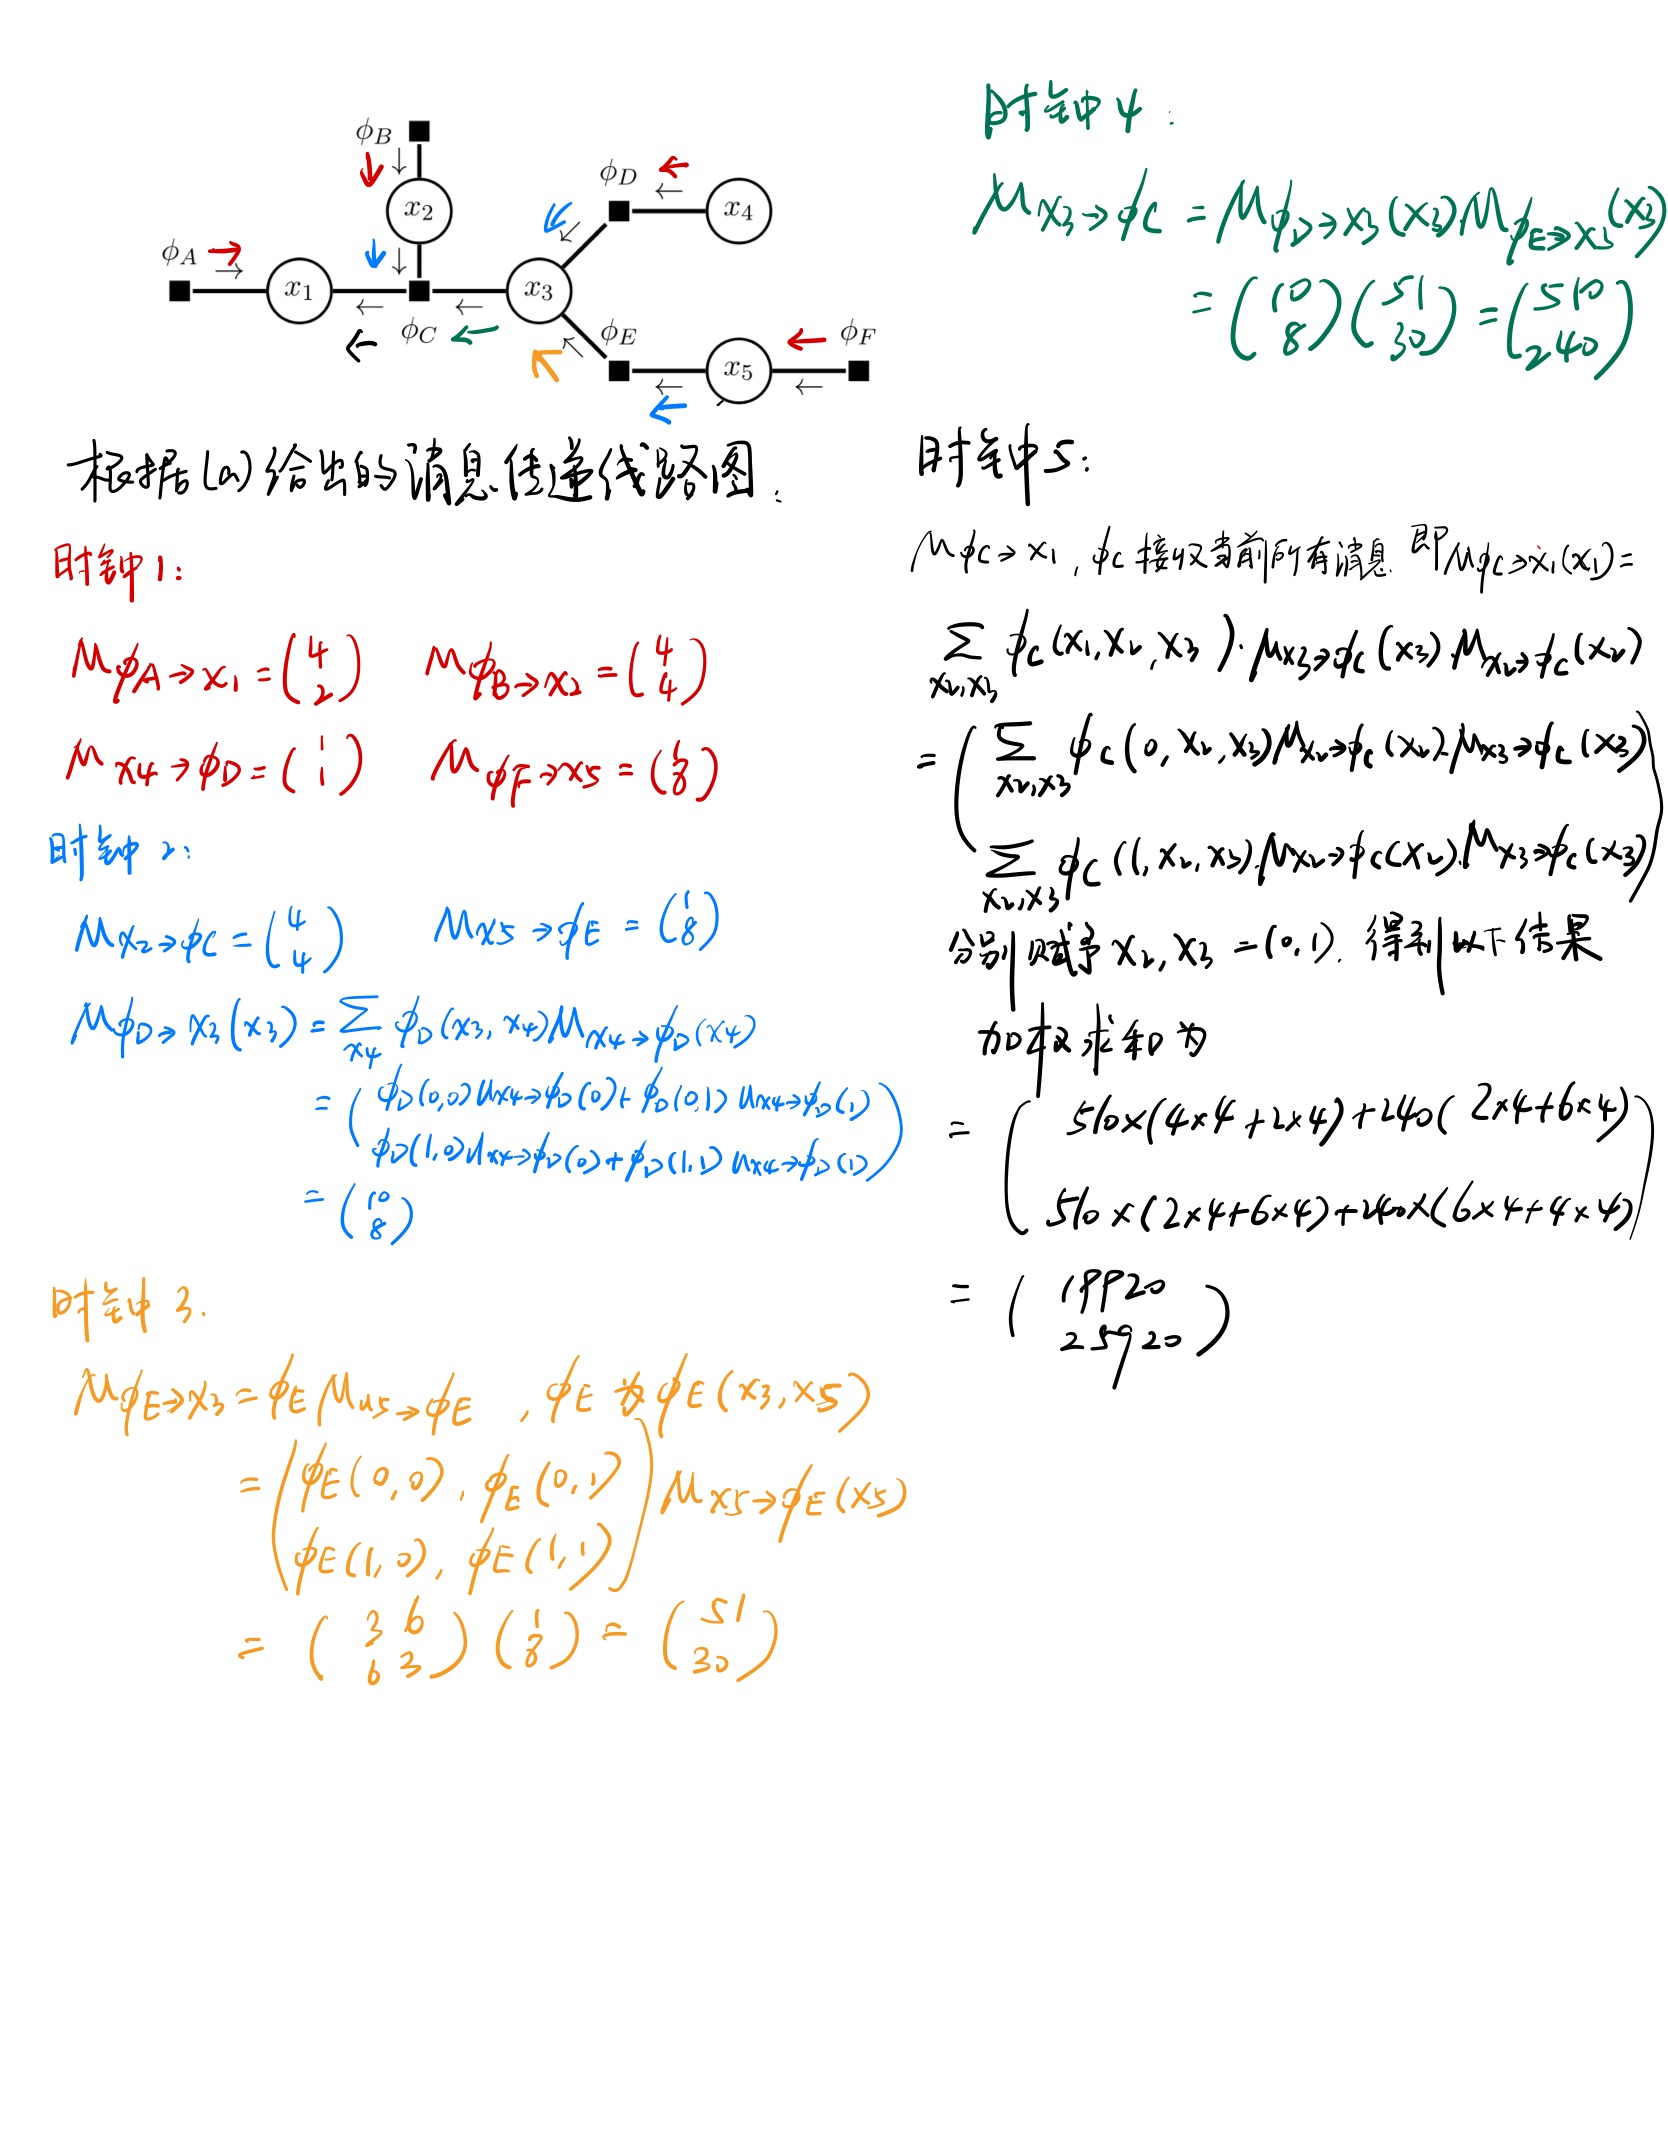 ϕB
ϕD
x2
x4
ϕA
x1
x3
ϕC
ϕE
ϕF
x5
根据(a)给出的消息传递线路图:
时钟1:
μϕA→x1 = (4 2) μϕB→x2 = (4 4)
μx4→ϕD = (1 1) μϕF→x5 = (1 8)
时钟2:
μx2→ϕC = (4 4) μx5→ϕE = (1 8)
μϕD→x3(x3) = ∑x4 ϕD(x3, x4) μx4→ϕD(x4)
= (ϕD(0,0) ux4→ϕD(0) + ϕD(0,1) ux4→ϕD(1)
ϕD(1,0) ux4→ϕD(0) + ϕD(1,1) ux4→ϕD(1))
= (10 8)
时钟3.
μϕE→x3 = ϕE μu5→ϕE , ϕE为ϕE(x3, x5)
= (ϕE(0,0), ϕE(0,1)
ϕE(1,0), ϕE(1,1)) μx5→ϕE(x5)
= (3 6 6 3)(1 8) = (51 30)
时钟4:
μx3→ϕC = μϕD→x3(x3) μϕE→x3(x3)
= (10 8)(51 30) = (510 240)
时钟5:
μϕC→x1, ϕC接收当前所有消息 即μϕC→x1(x1)=
∑x2,x3 ϕC(x1,x2,x3)·μx3→ϕC(x3)·μx2→ϕC(x2)
= (∑x2,x3 ϕC(0,x2,x3) μx2→ϕC(x2)·μx3→ϕC(x3)
∑x2,x3 ϕC(1,x2,x3)·μx2→ϕC(x2)·μx3→ϕC(x3))
分别赋予x2,x3=(0,1). 得到以下结果
加权求和为
= (510×(4×4+2×4)+240(2×4+6×4)
510×(2×4+6×4)+240×(6×4+4×4))
= (19920
25920)